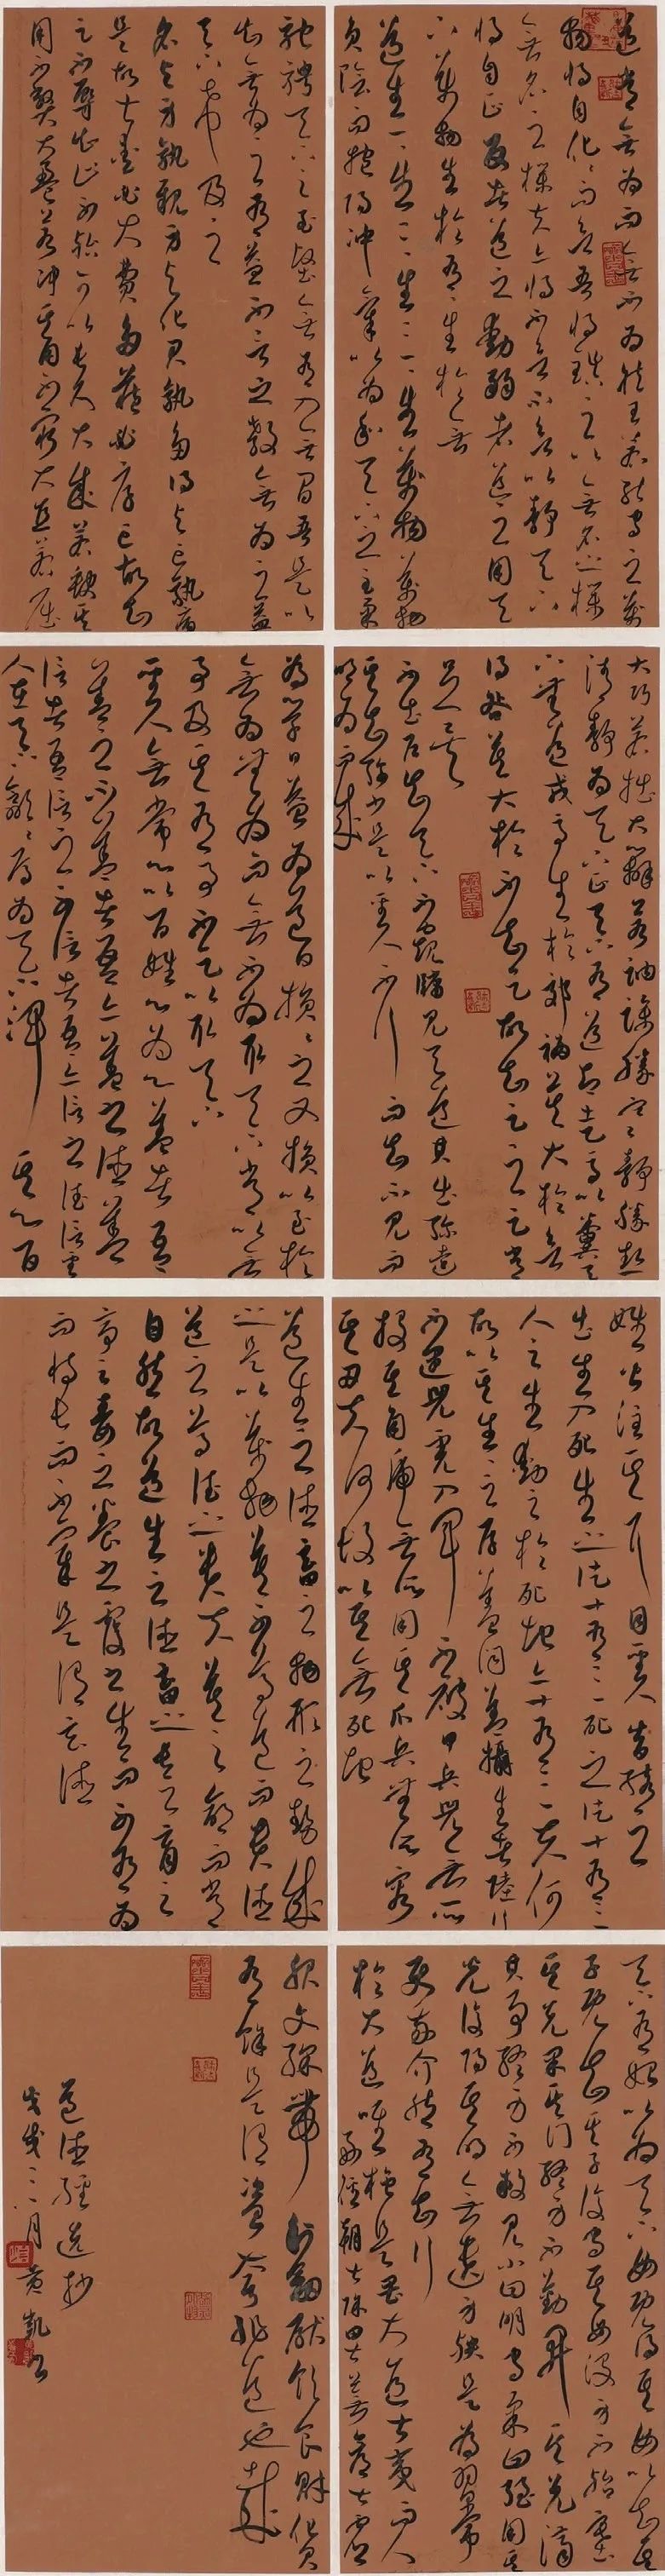 道常無為而無不為侯王若能守之萬
物將自化化而欲吾將鎮之以無名之樸
無名之樸夫亦將不欲不欲以靜天下
將自正反者道之動弱者道之用天
下萬物生於有有生於無
道生一一生二二生三三生萬物萬物
負陰而抱陽沖氣以為和天下之至柔
馳騁天下之至堅無有入無間吾是以
知無為之有益不言之教無為之益
天下希及之
名與身孰親身與貨孰多得與亡孰病
是故甚愛必大費多藏必厚亡故知
足不辱知止不殆可以長久大成若缺其
用不弊大盈若沖其用不窮大直若屈
大巧若拙大辯若訥躁勝寒靜勝熱
清靜為天下正天下有道卻走馬以糞天
下無道戎馬生於郊禍莫大於欲
得咎莫大於不知足故知足之足常
足矣
不出戶知天下不窺牖見天道其出彌遠
其知彌少是以聖人不行而知不見而
明不為而成
為學日益為道日損損之又損以至於
無為無為而無不為取天下常以無
事及其有事不足以取天下
聖人無常心以百姓心為心善者吾
善之不善者吾亦善之德善
信者吾信之不信者吾亦信之德信聖
人在天下歙歙焉為天下渾其心百
姓皆注其耳目聖人皆孩之
出生入死生之徒十有三死之徒十有三
人之生動之於死地亦十有三夫何
故以其生生之厚蓋聞善攝生者陸行
不遇兕虎入軍不被甲兵兕無所
投其角虎無所用其爪兵無所容
其刃夫何故以其無死地
道生之德畜之物形之勢成
之是以萬物莫不尊道而貴德
道之尊德之貴夫莫之命而常
自然故道生之德畜之長之育之
亭之毒之養之覆之生而不有為
而恃長而不宰是謂玄德
天下有始以為天下母既得其母以知其
子既知其子復守其母沒身不殆塞
其兌閉其門終身不勤開其兌濟
其事終身不救見小曰明守柔曰強用其
光復歸其明無遺身殃是為習常
使我介然有知行
於大道唯施是畏大道甚夷而人
好徑朝甚除田甚蕪倉甚虛
服文綵帶利劍厭飲食財貨
有餘是謂盜夸非道也哉
道德經選抄
戊戌 月黃凱書